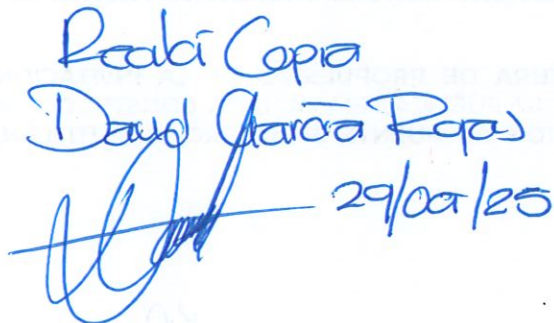 Recibí Copia
David García Rojas
29/oct/25